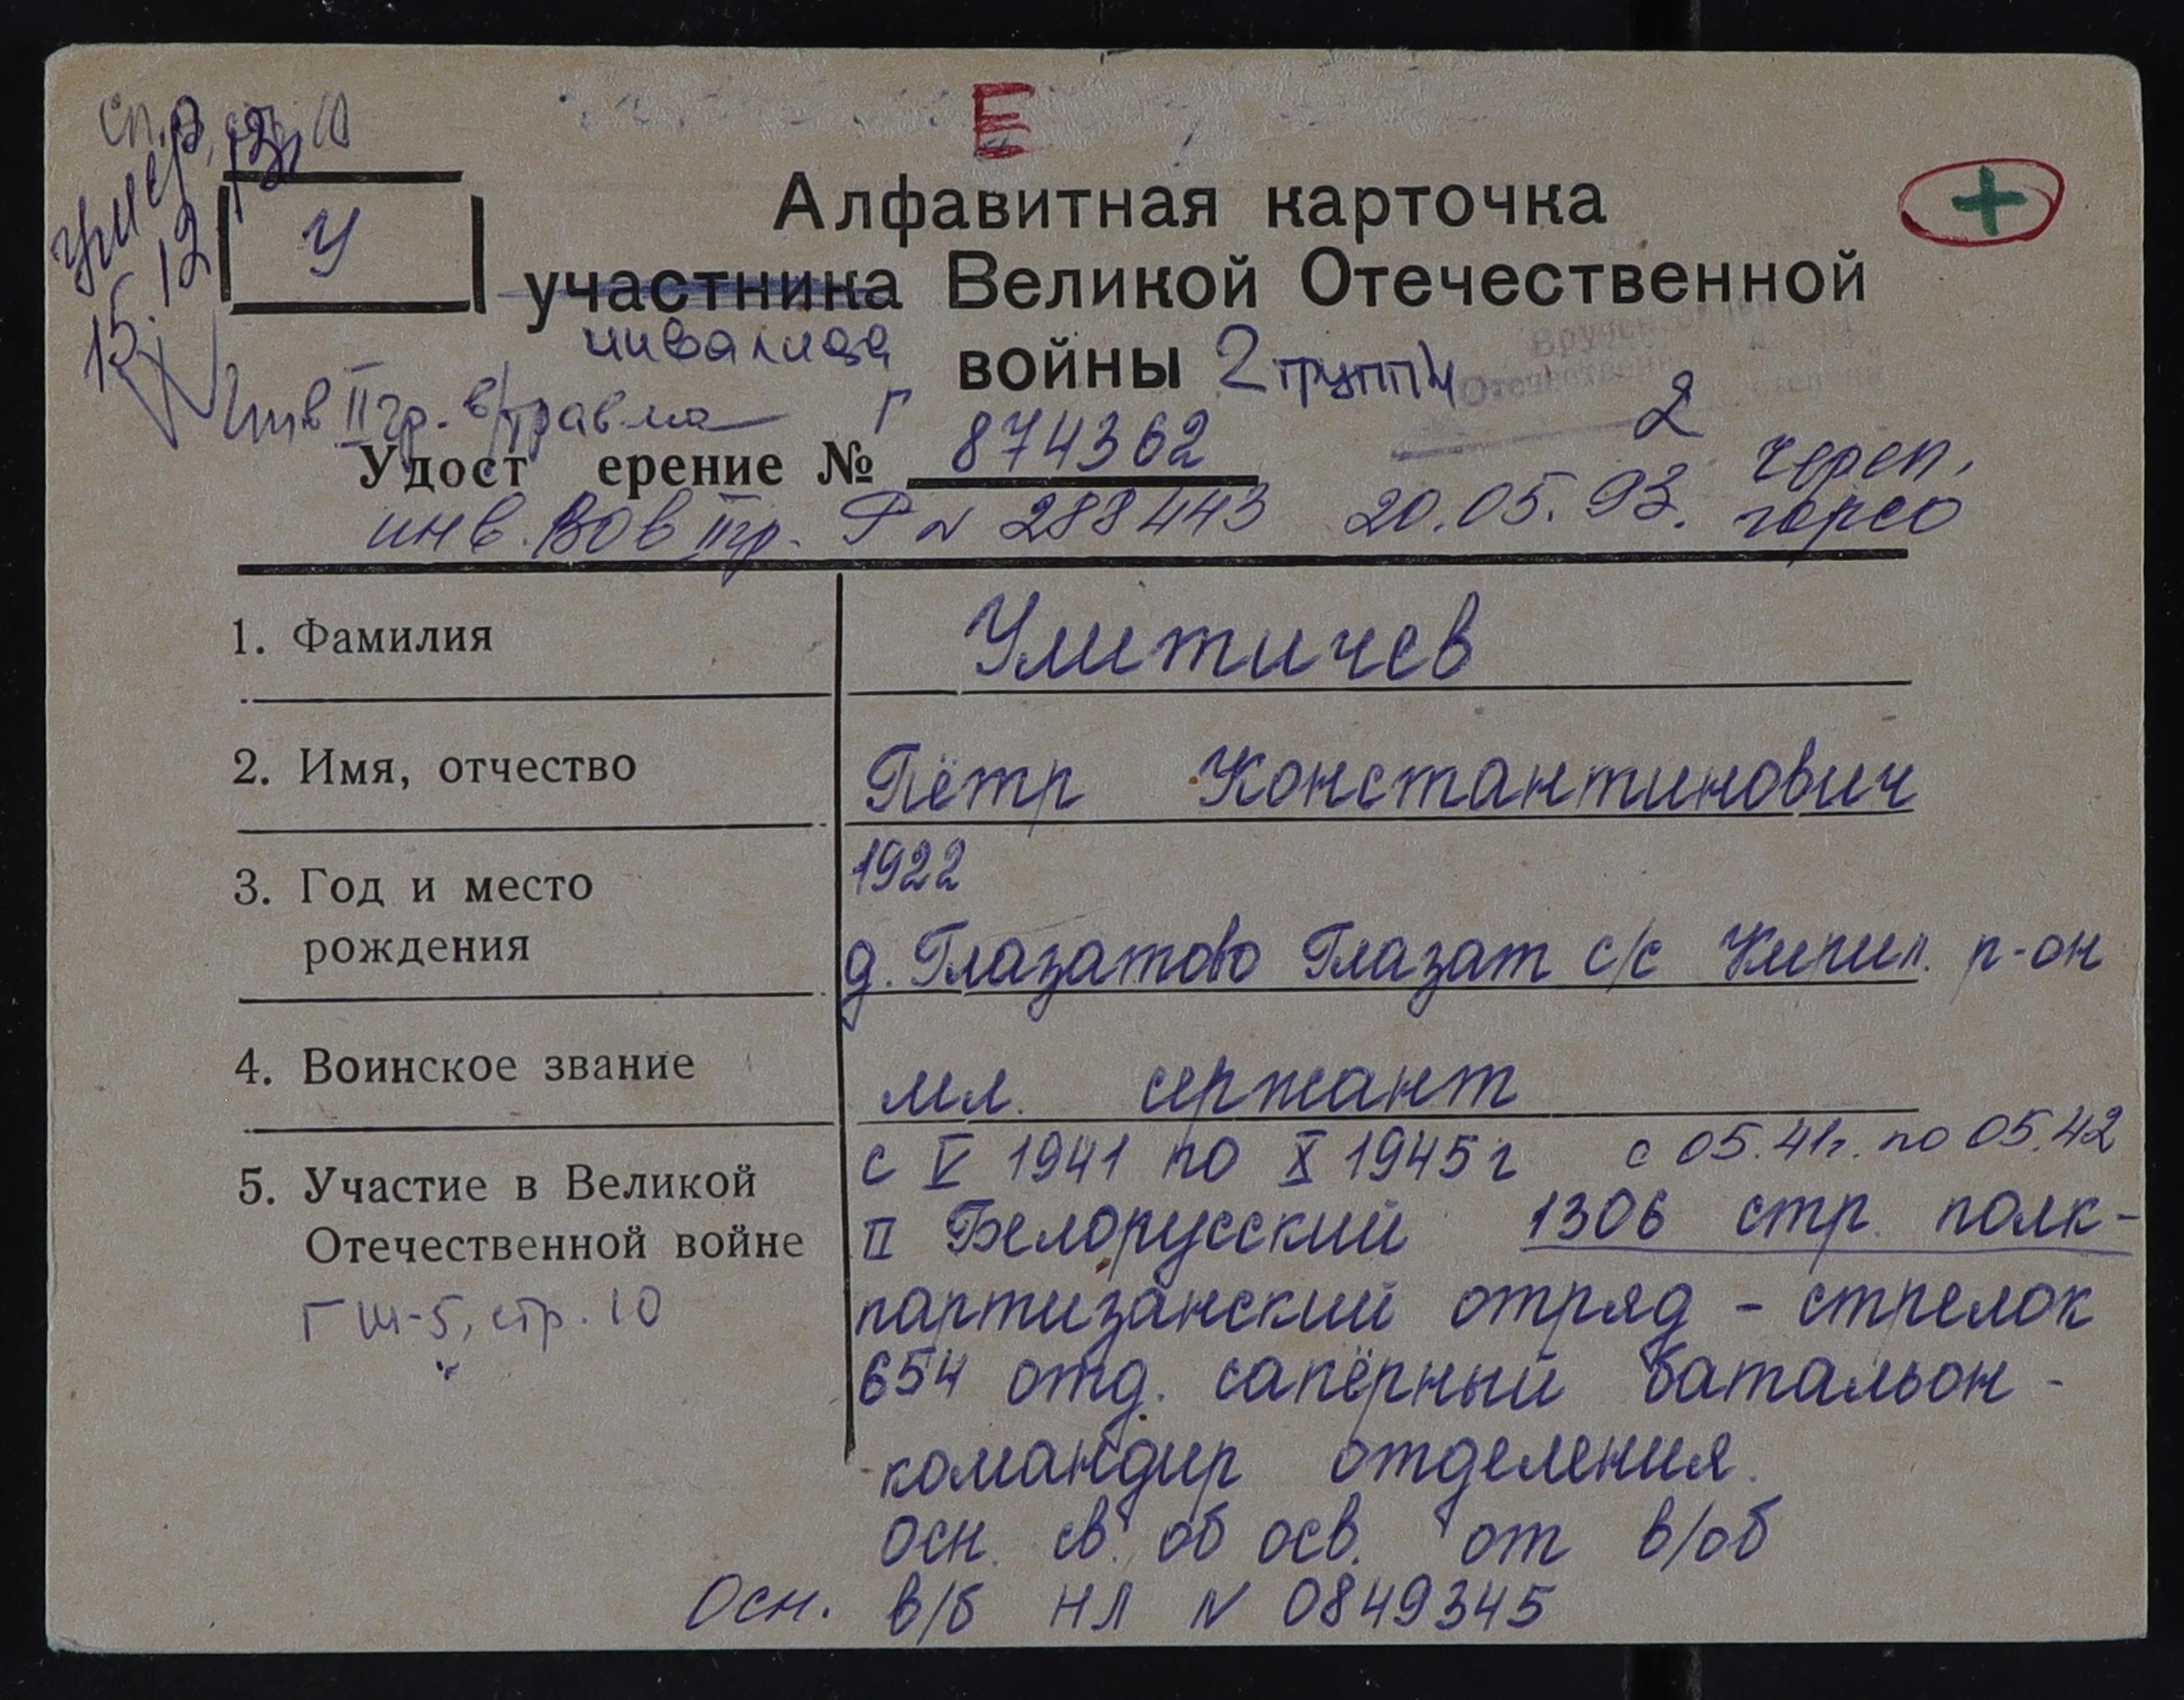 Е
умер
15.12
У
+
Алфавитная карточка
участника Великой Отечественной
инвалида войны 2 группы
Инв II гр. в/травма Г
2
Удост ерение № 874362
череп.
инв. ВОВ II гр. Р № 288443 20.05.93. горсо
1. Фамилия Улитичев
2. Имя, отчество Пётр Константинович
3. Год и место 1922
рождения д. Глазатово Глазат с/с Кирил. р-он
4. Воинское звание мл. сержант
с V 1941 по X 1945г с 05.41г. по 05.42
5. Участие в Великой II Белорусский 1306 стр. полк-
Отечественной войне
ГШ-5, стр. 10 партизанский отряд - стрелок
654 отд. сапёрный батальон -
командир отделения.
осн. св. об осв. от в/об
Осн. в/б НЛ N 0849345